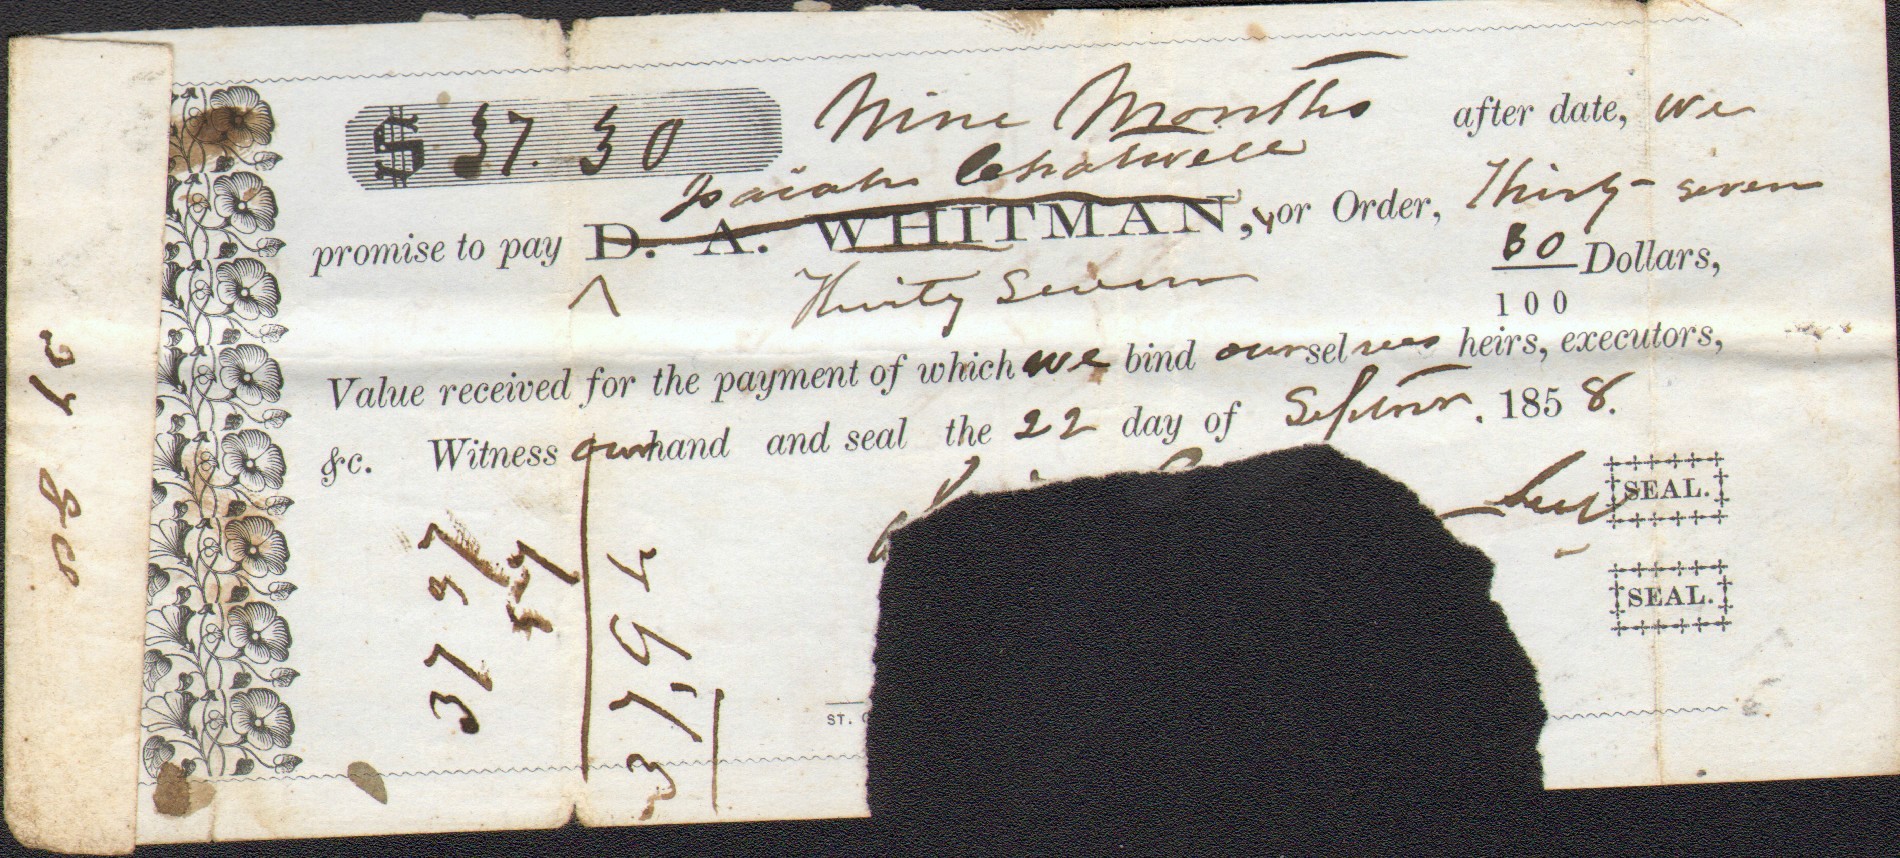 $ 37.30 Nine Months after date, we
Isaiah Chatwell
promise to pay D. A. WHITMAN, or Order, Thirty-seven
30
100 Dollars,
Thirty Seven
Value received for the payment of which we bind ourselves heirs, executors,
&c. Witness our hand and seal the 22 day of Septmr. 1858.
SEAL.
SEAL.
ST.
37 37
37,92
37 80